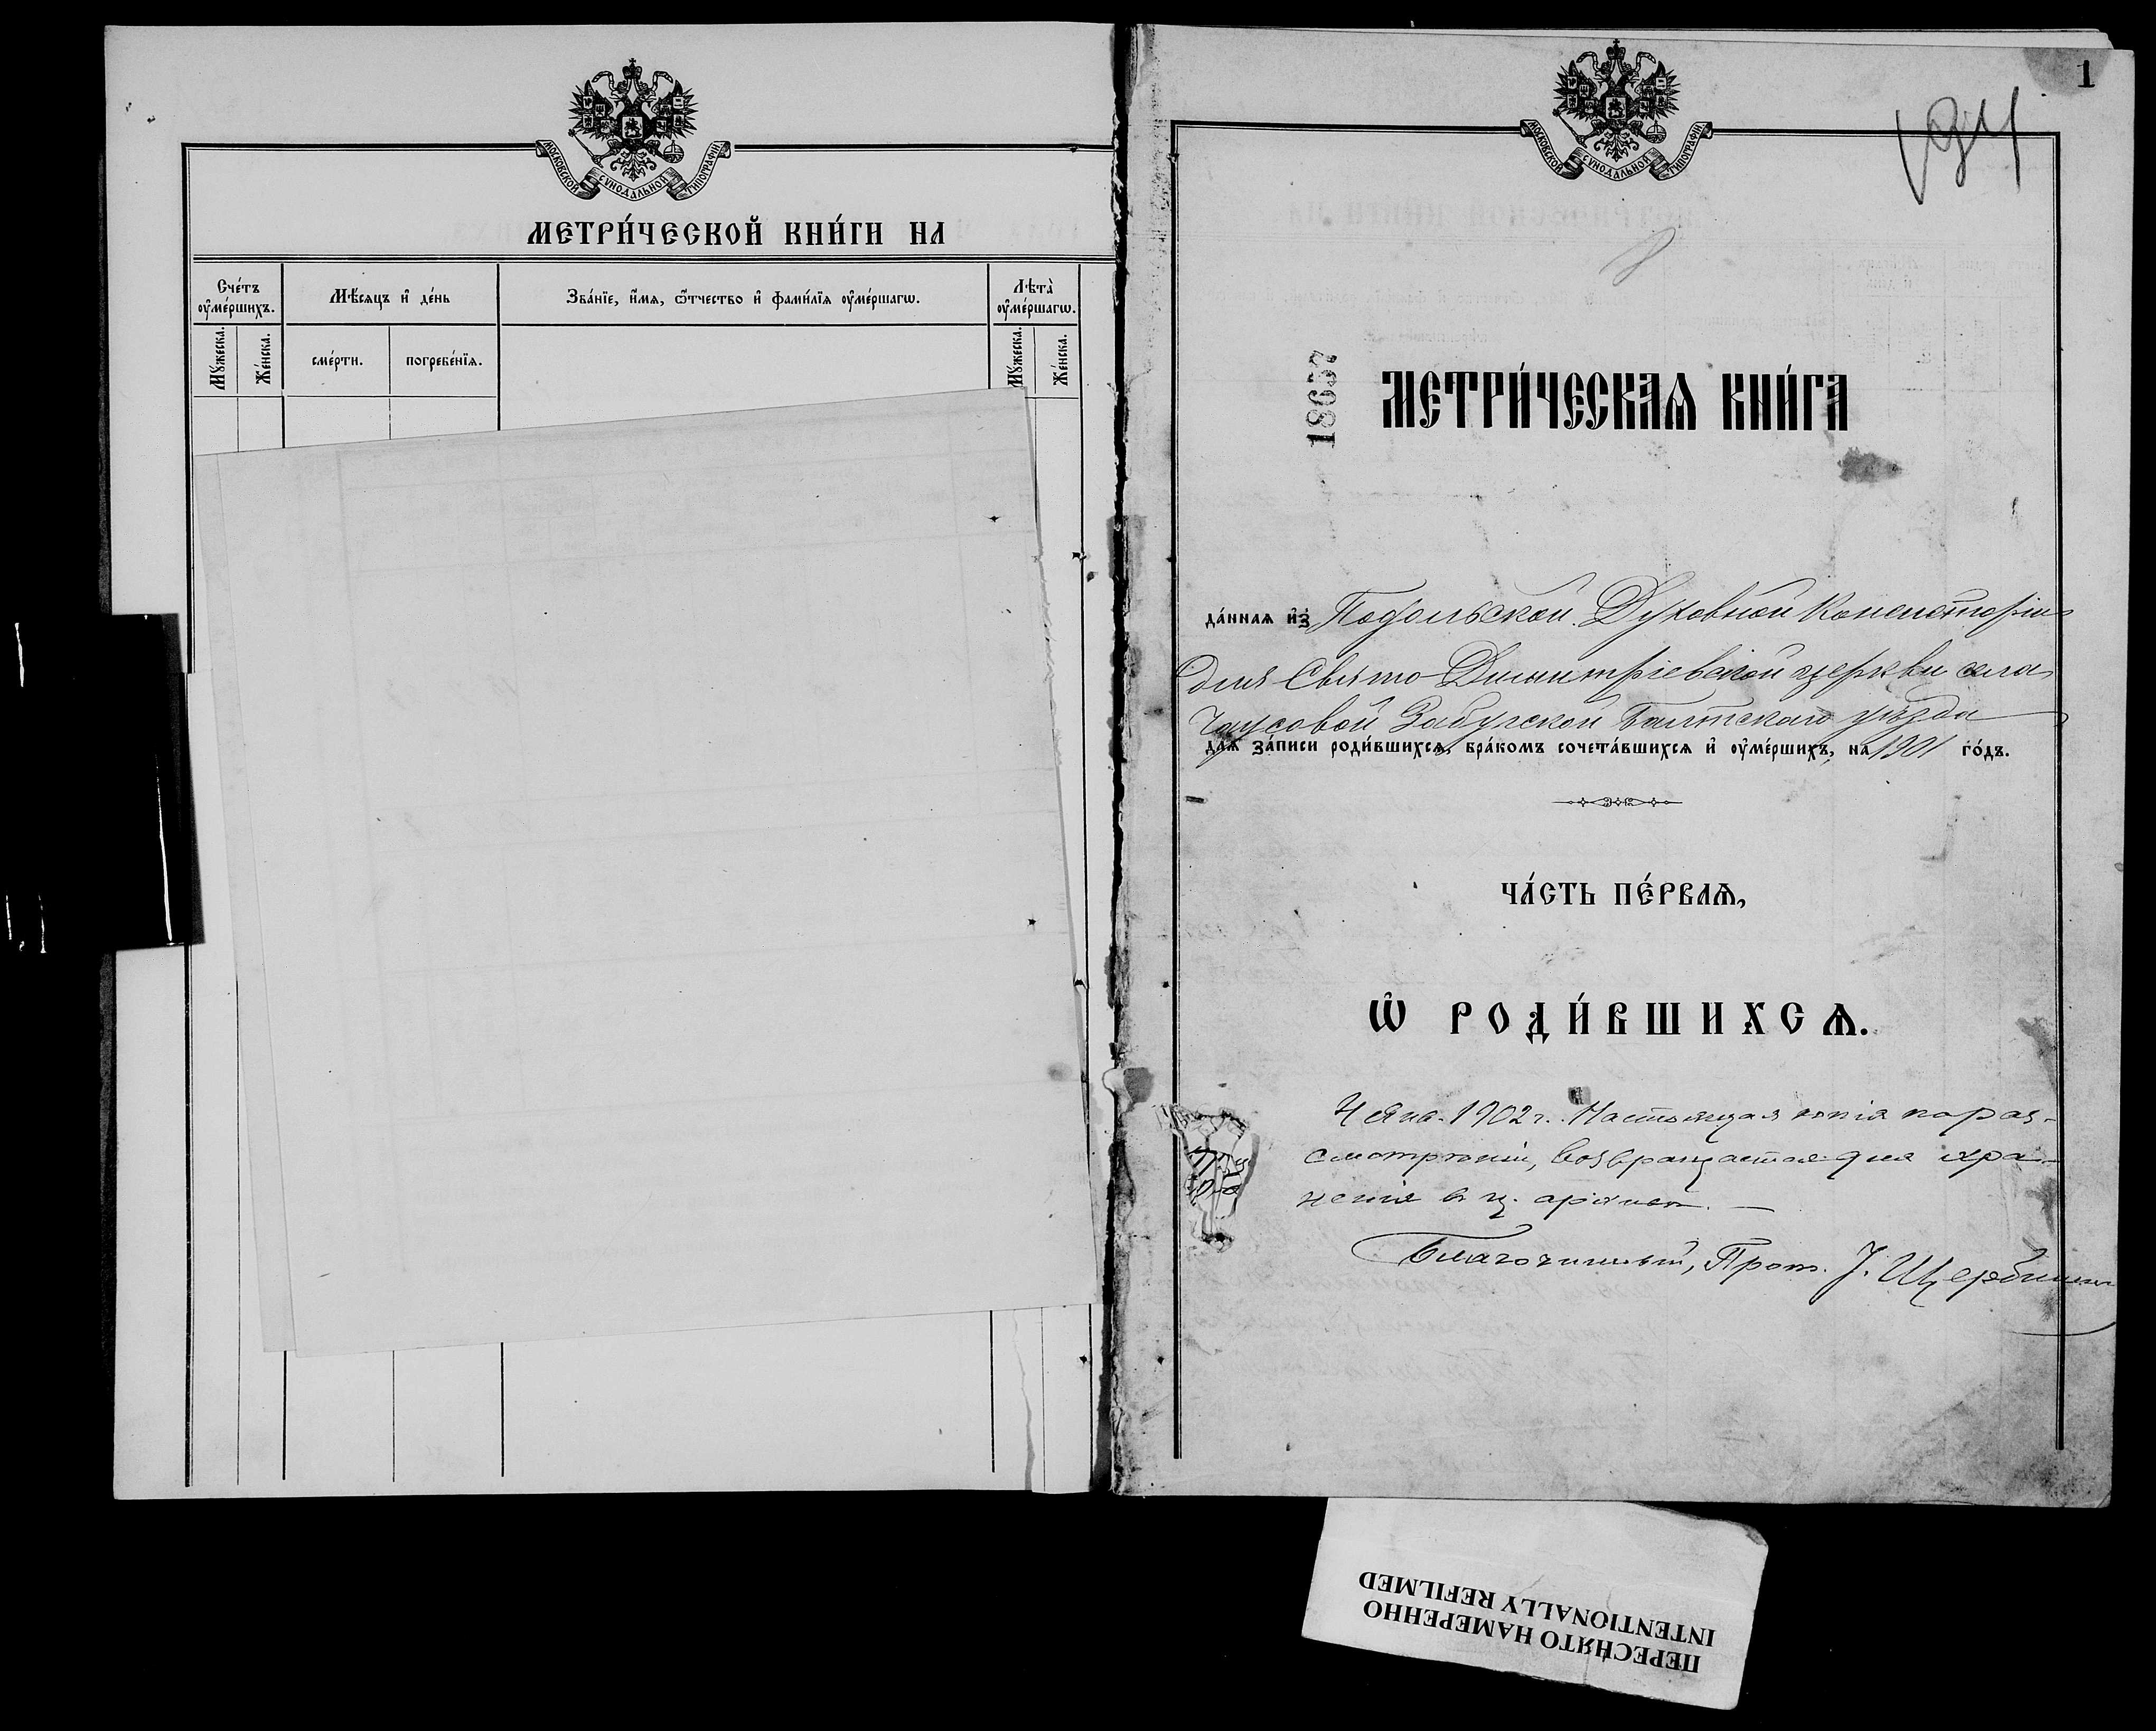 МОСКОВСКОЙ СУНОДАЛЬНОЙ ТИПОГРАФІИ
МЕТРИ́ЧЕСКОЙ КНИ́ГИ НА
Сче́тъ оу҆ме́ршихъ.
Мѣ́сяцъ и҆ де́нь
Зва́нїе, и҆́мѧ, ѻ҆́тчество и҆ фами́лїѧ оу҆ме́ршагѡ.
Лѣта̀ оу҆ме́ршагѡ.
Мꙋ́жеска.
Же́нска.
сме́рти.
погребе́нїѧ.
Мꙋ́жеска.
Же́нска.
1
МОСКОВСКОЙ СУНОДАЛЬНОЙ ТИПОГРАФІИ
18657
МЕТРИ́ЧЕСКАѦ КНИ́ГА
да́ннаѧ и҆з̾ Подольской Духовной Консисторіи
для Свято Димитріевской церкви села
Чаусовой Забугской Балтскаго уѣзда
длѧ̀ за́писи роди́вшихсѧ, бра́комъ сочета́вшихсѧ и҆ оу҆ме́ршихъ, на 1901 го́дъ.
ЧА́СТЬ ПЕ́РВАѦ,
Ѡ҆ РОДИ́ВШИХСѦ.
4 Янв. 1902 г. Настоящая копія по раз-
смотрѣніи, возвращается для хра-
ненія въ ц. архивѣ. —
Благочинный, Прот. І.
ПЕРЕСНЯТО НАМЕРЕННО
INTENTIONALLY REFILMED